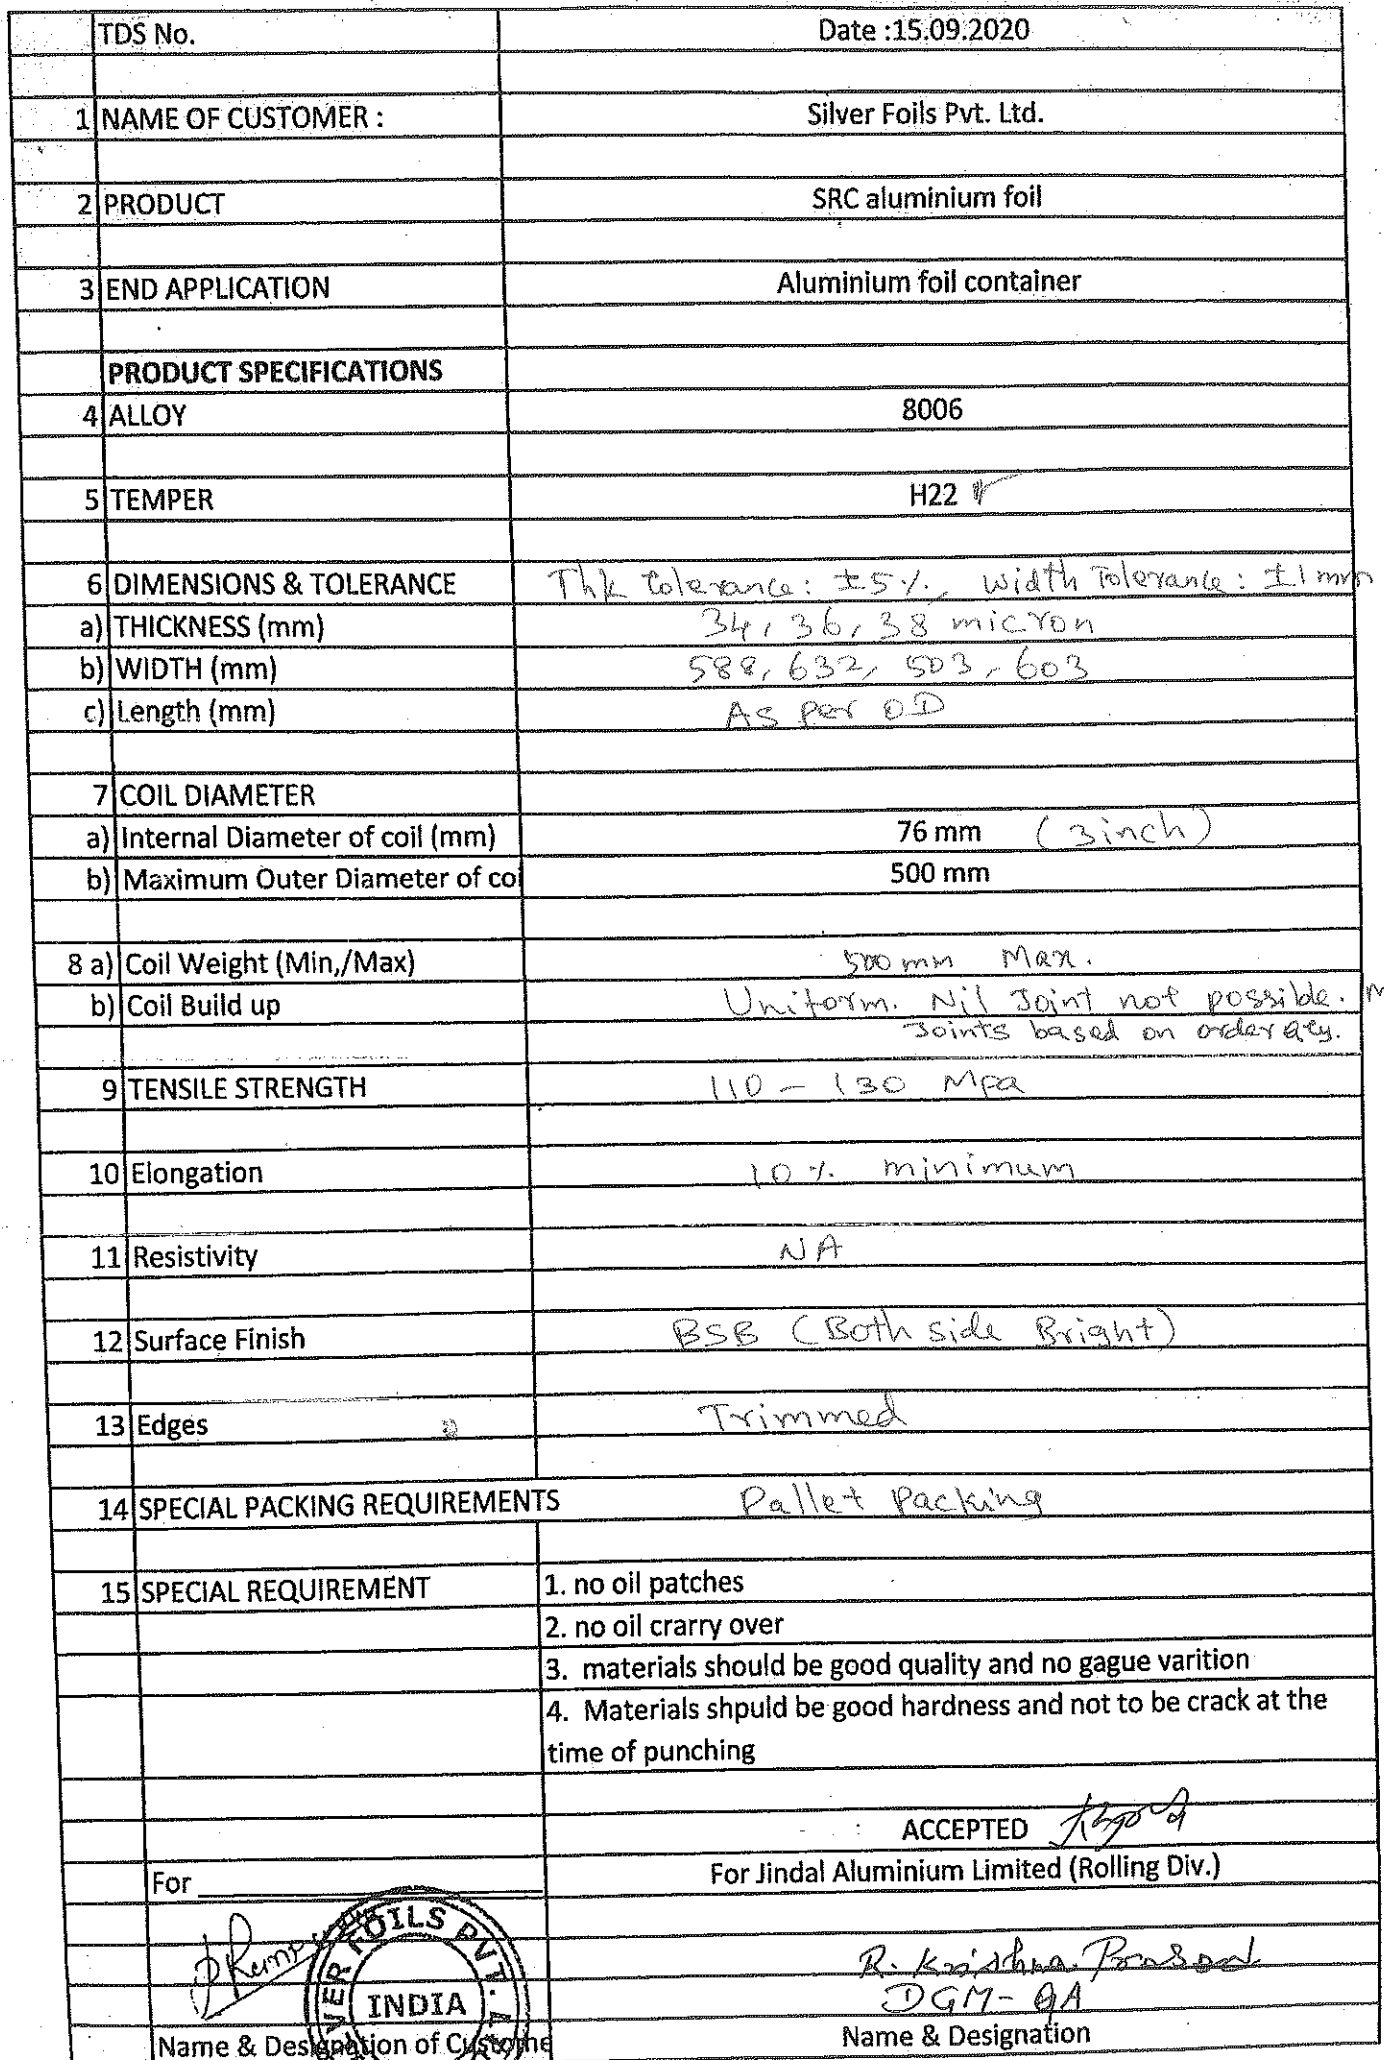 TDS No. Date :15.09.2020
1 NAME OF CUSTOMER : Silver Foils Pvt. Ltd.
2 PRODUCT SRC aluminium foil
3 END APPLICATION Aluminium foil container
PRODUCT SPECIFICATIONS
4 ALLOY 8006
5 TEMPER H22
6 DIMENSIONS & TOLERANCE Thk tolerance: ±5%, Width Tolerance: ±1mm
a) THICKNESS (mm) 34, 36, 38 micron
b) WIDTH (mm) 588, 632, 503, 603
c) Length (mm) As per OD
7 COIL DIAMETER
a) Internal Diameter of coil (mm) 76 mm (3inch)
b) Maximum Outer Diameter of coi 500 mm
8 a) Coil Weight (Min,/Max) 500mm Max.
b) Coil Build up Uniform. Nil Joint not possible.
Joints based on order qty.
9 TENSILE STRENGTH 110 - 130 Mpa
10 Elongation 10% minimum
11 Resistivity NA
12 Surface Finish BSB (Both side Bright)
13 Edges Trimmed
14 SPECIAL PACKING REQUIREMENTS Pallet Packing
15 SPECIAL REQUIREMENT 1. no oil patches
2. no oil crarry over
3. materials should be good quality and no gague varition
4. Materials shpuld be good hardness and not to be crack at the
time of punching
ACCEPTED
For For Jindal Aluminium Limited (Rolling Div.)
VER FOILS PVT.
INDIA
R. Krishna Prasad
DGM-QA
Name & Designation of Custome Name & Designation